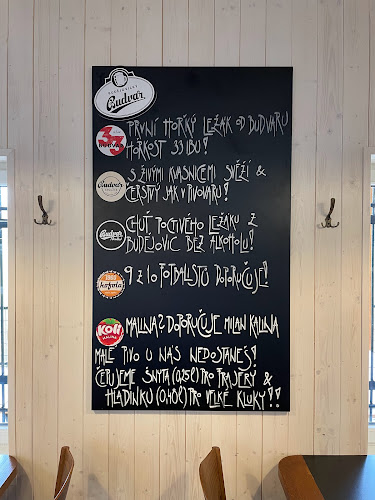 BUDĚJOVICKÝ
Budvar
33
BUDVAR
PRVNÍ HOŘKÝ LEŽÁK OD BUDVARU
HOŘKOST 33 IBU!
Budvar
S ŽIVÝMI KVASNICEMI SVĚŽÍ &
ČERSTVÝ JAK V PIVOVARU!
Budvar
CHUŤ POCTIVÉHO LEŽÁKU Z
BUDĚJOVIC BEZ ALKOHOLU!
kofola
9 Z 10 FOTBALISTŮ DOPORUČUJE!
KOLI
MALINA? DOPORUČUJE MILAN KALINA
MALÉ PIVO U NÁS NEDOSTANEŠ!
ČEPUJEME ŠNYTA (0,25L) PRO FRAJERY &
HLADINKU (0,40L) PRO VELKÉ KLUKY!!